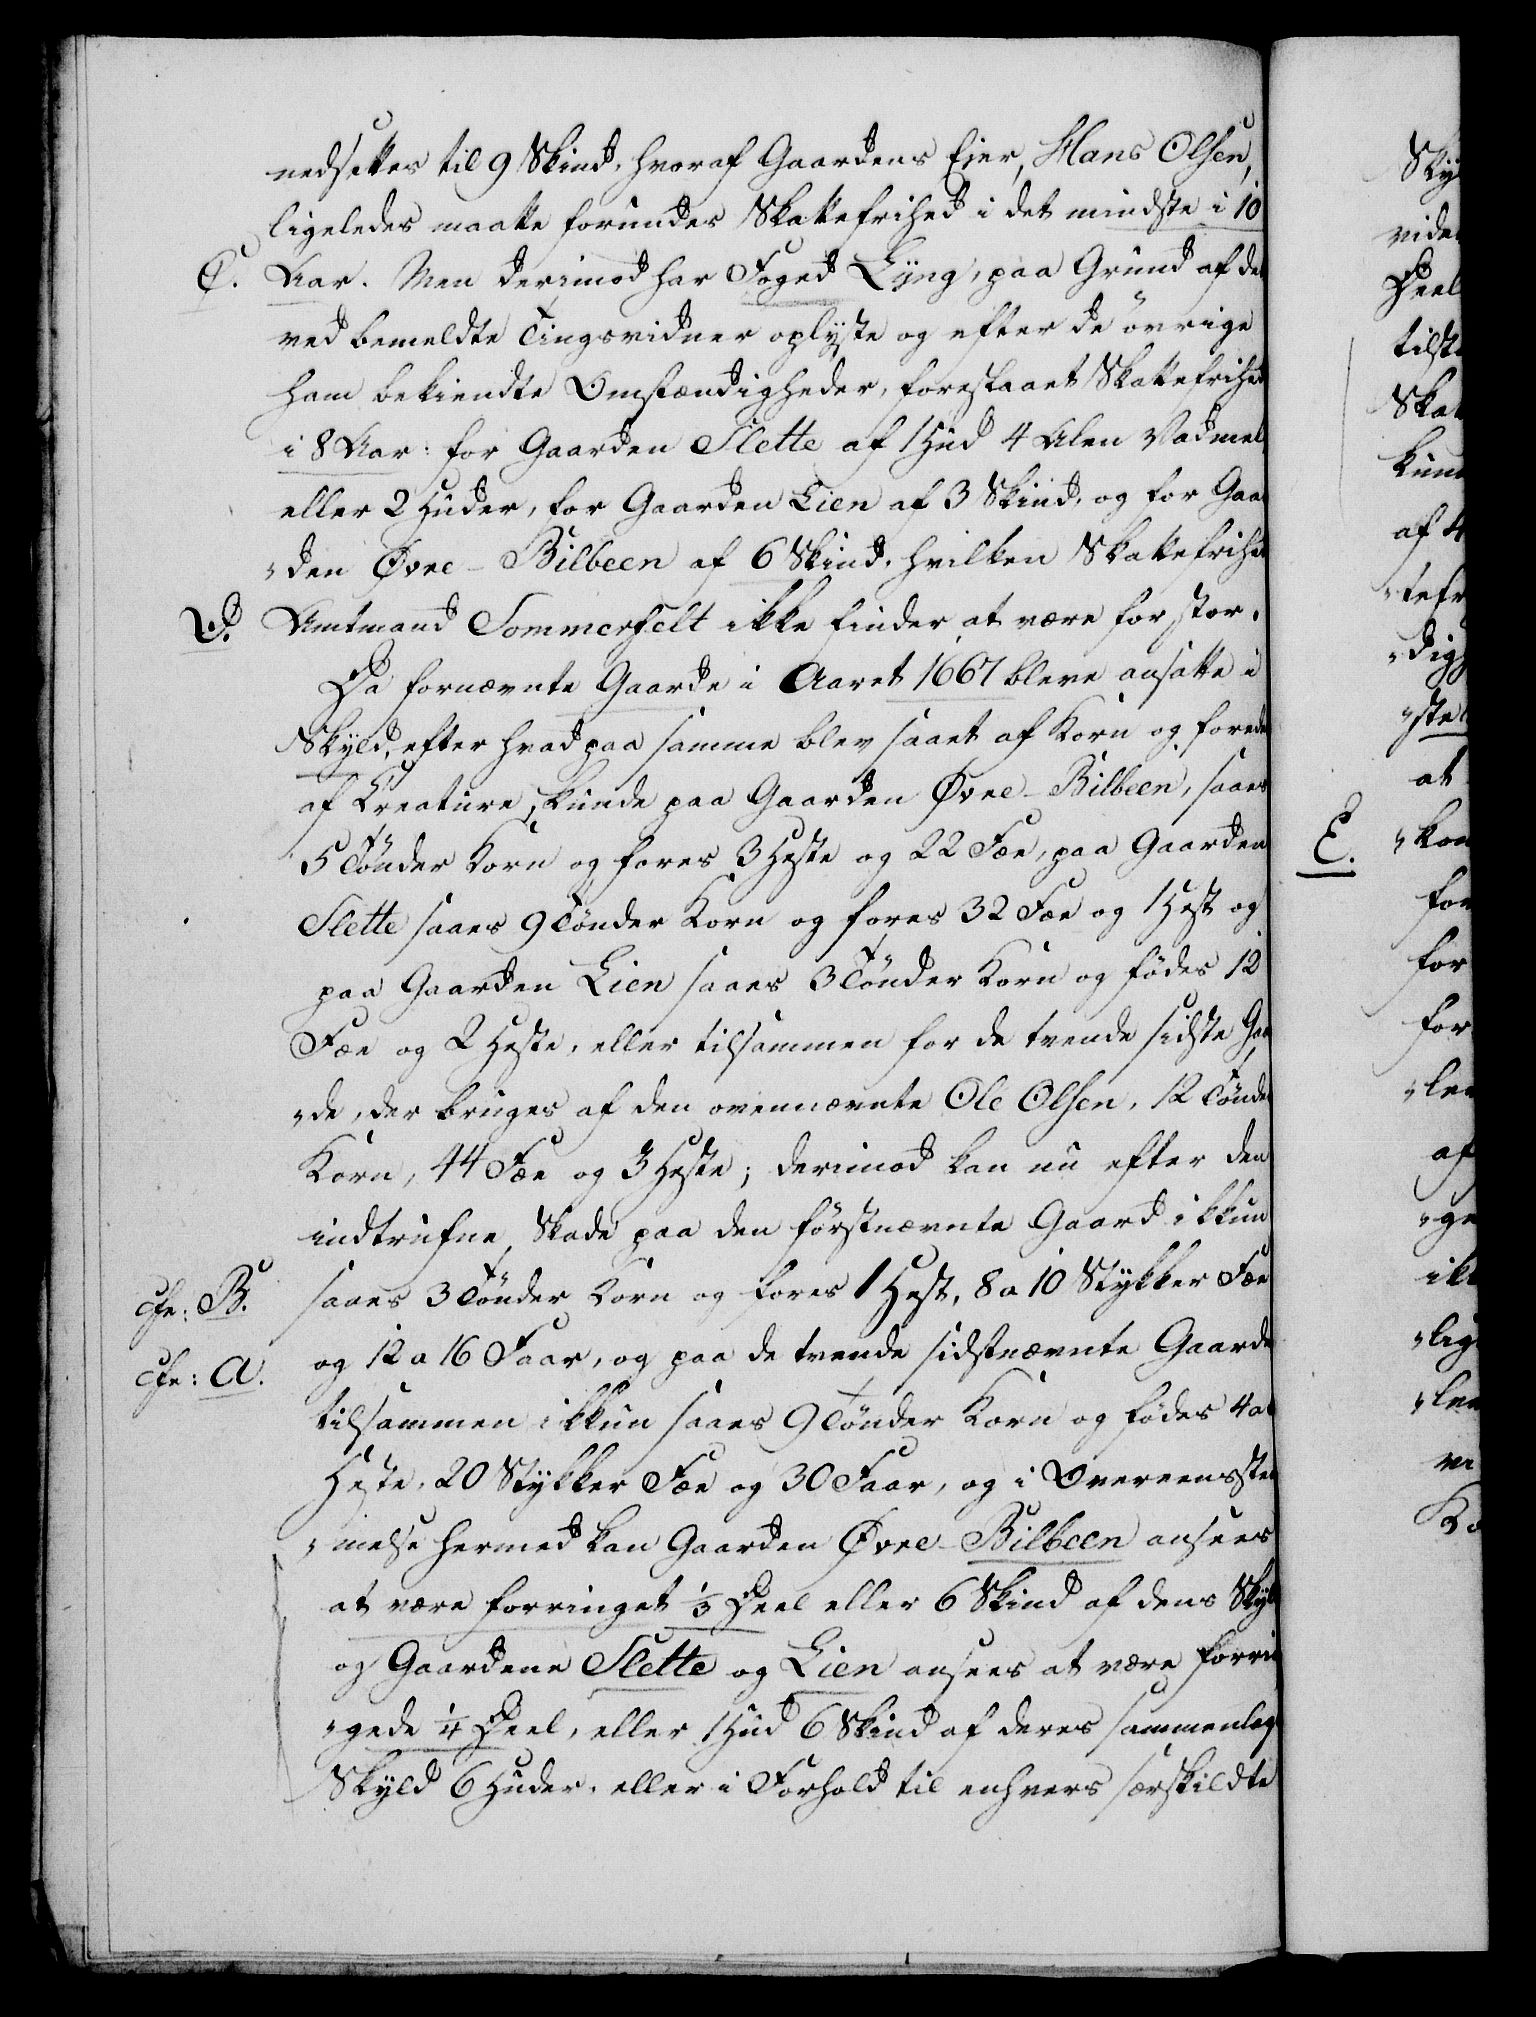 nedsettes til 9 Skind, hvoraf Gaardens Eier, Hans Olsen,
ligeledes maatte forundes Skattefrihed i det mindste i 10
C. Aar. Men derimod har Foged Lyng, paa Grund af det
ved bemeldte Tingsvidner oplyste og efter de övrige
ham bekiendte Omstændigheder, foreslaaet Skattefrihed
i 8 Aar: for Gaarden Slette af 1 Hud 4 Alen Vadmel
eller 2 Huder, for Gaarden Lien af 3 Skind, og for Gaar
„den Øvre-Bilbeen af 6 Skind, hvilken Skattefrihed
D. Amtmand Sommerfelt ikke finder at være for stor.
Da fornævnte Gaarde i Aaret 1667 bleve ansatte i
Skyld, efter hvad paa samme blev saaet af Korn og foredes
af Kreature, kunde paa Gaarden Øvre-Bilbeen, saaes
5 Tönder Korn og fores 3 Heste og 22 Fæe, paa Gaarden
Slette saaes 9 Tönder Korn og fores 32 Fæe og 1 Hest og
paa Gaarden Lien saaes 3 Tönder Korn og födes 12
Fæe og 2 Heste, eller tilsammen for de tvende sidste Gaa
„de, der bruges af den ovennævnte Ole Olsen, 12 Tönder
Korn, 44 Fæe og 3 Heste; derimod kan nu efter den
indtrufne Skade paa den förstnævnte Gaard ikkun
cfr: B. saaes 3 Tönder Korn og fores 1 Hest, 8 a 10 Stykker Fæe
cfr: A. og 12 a 16 Faar, og paa de tvende sidstnævnte Gaarde
tilsammen ikkun saaes 9 Tönder Korn og födes 4 a
Heste, 20 Stykker Fæe og 30 Faar, og i Overeensstem
„melse hermed kan Gaarden Øvre-Bilbeen ansees
at være forringet 1/3 Deel eller 6 Skind af dens Skyld
og Gaardene Slette og Lien ansees at være forrin
„gede 1/4 Deel, eller 1 Hud 6 Skind af deres sammenlagte
Skyld 6 Huder, eller i Forhold til enhvers særskildte
Sky
vide
Deel
tilst
Skat
kun
af 4
„tefr
„dig
„ste
at
E. „kom
for
for
for
„len
af
„ge
ikk
„lig
„len
ve